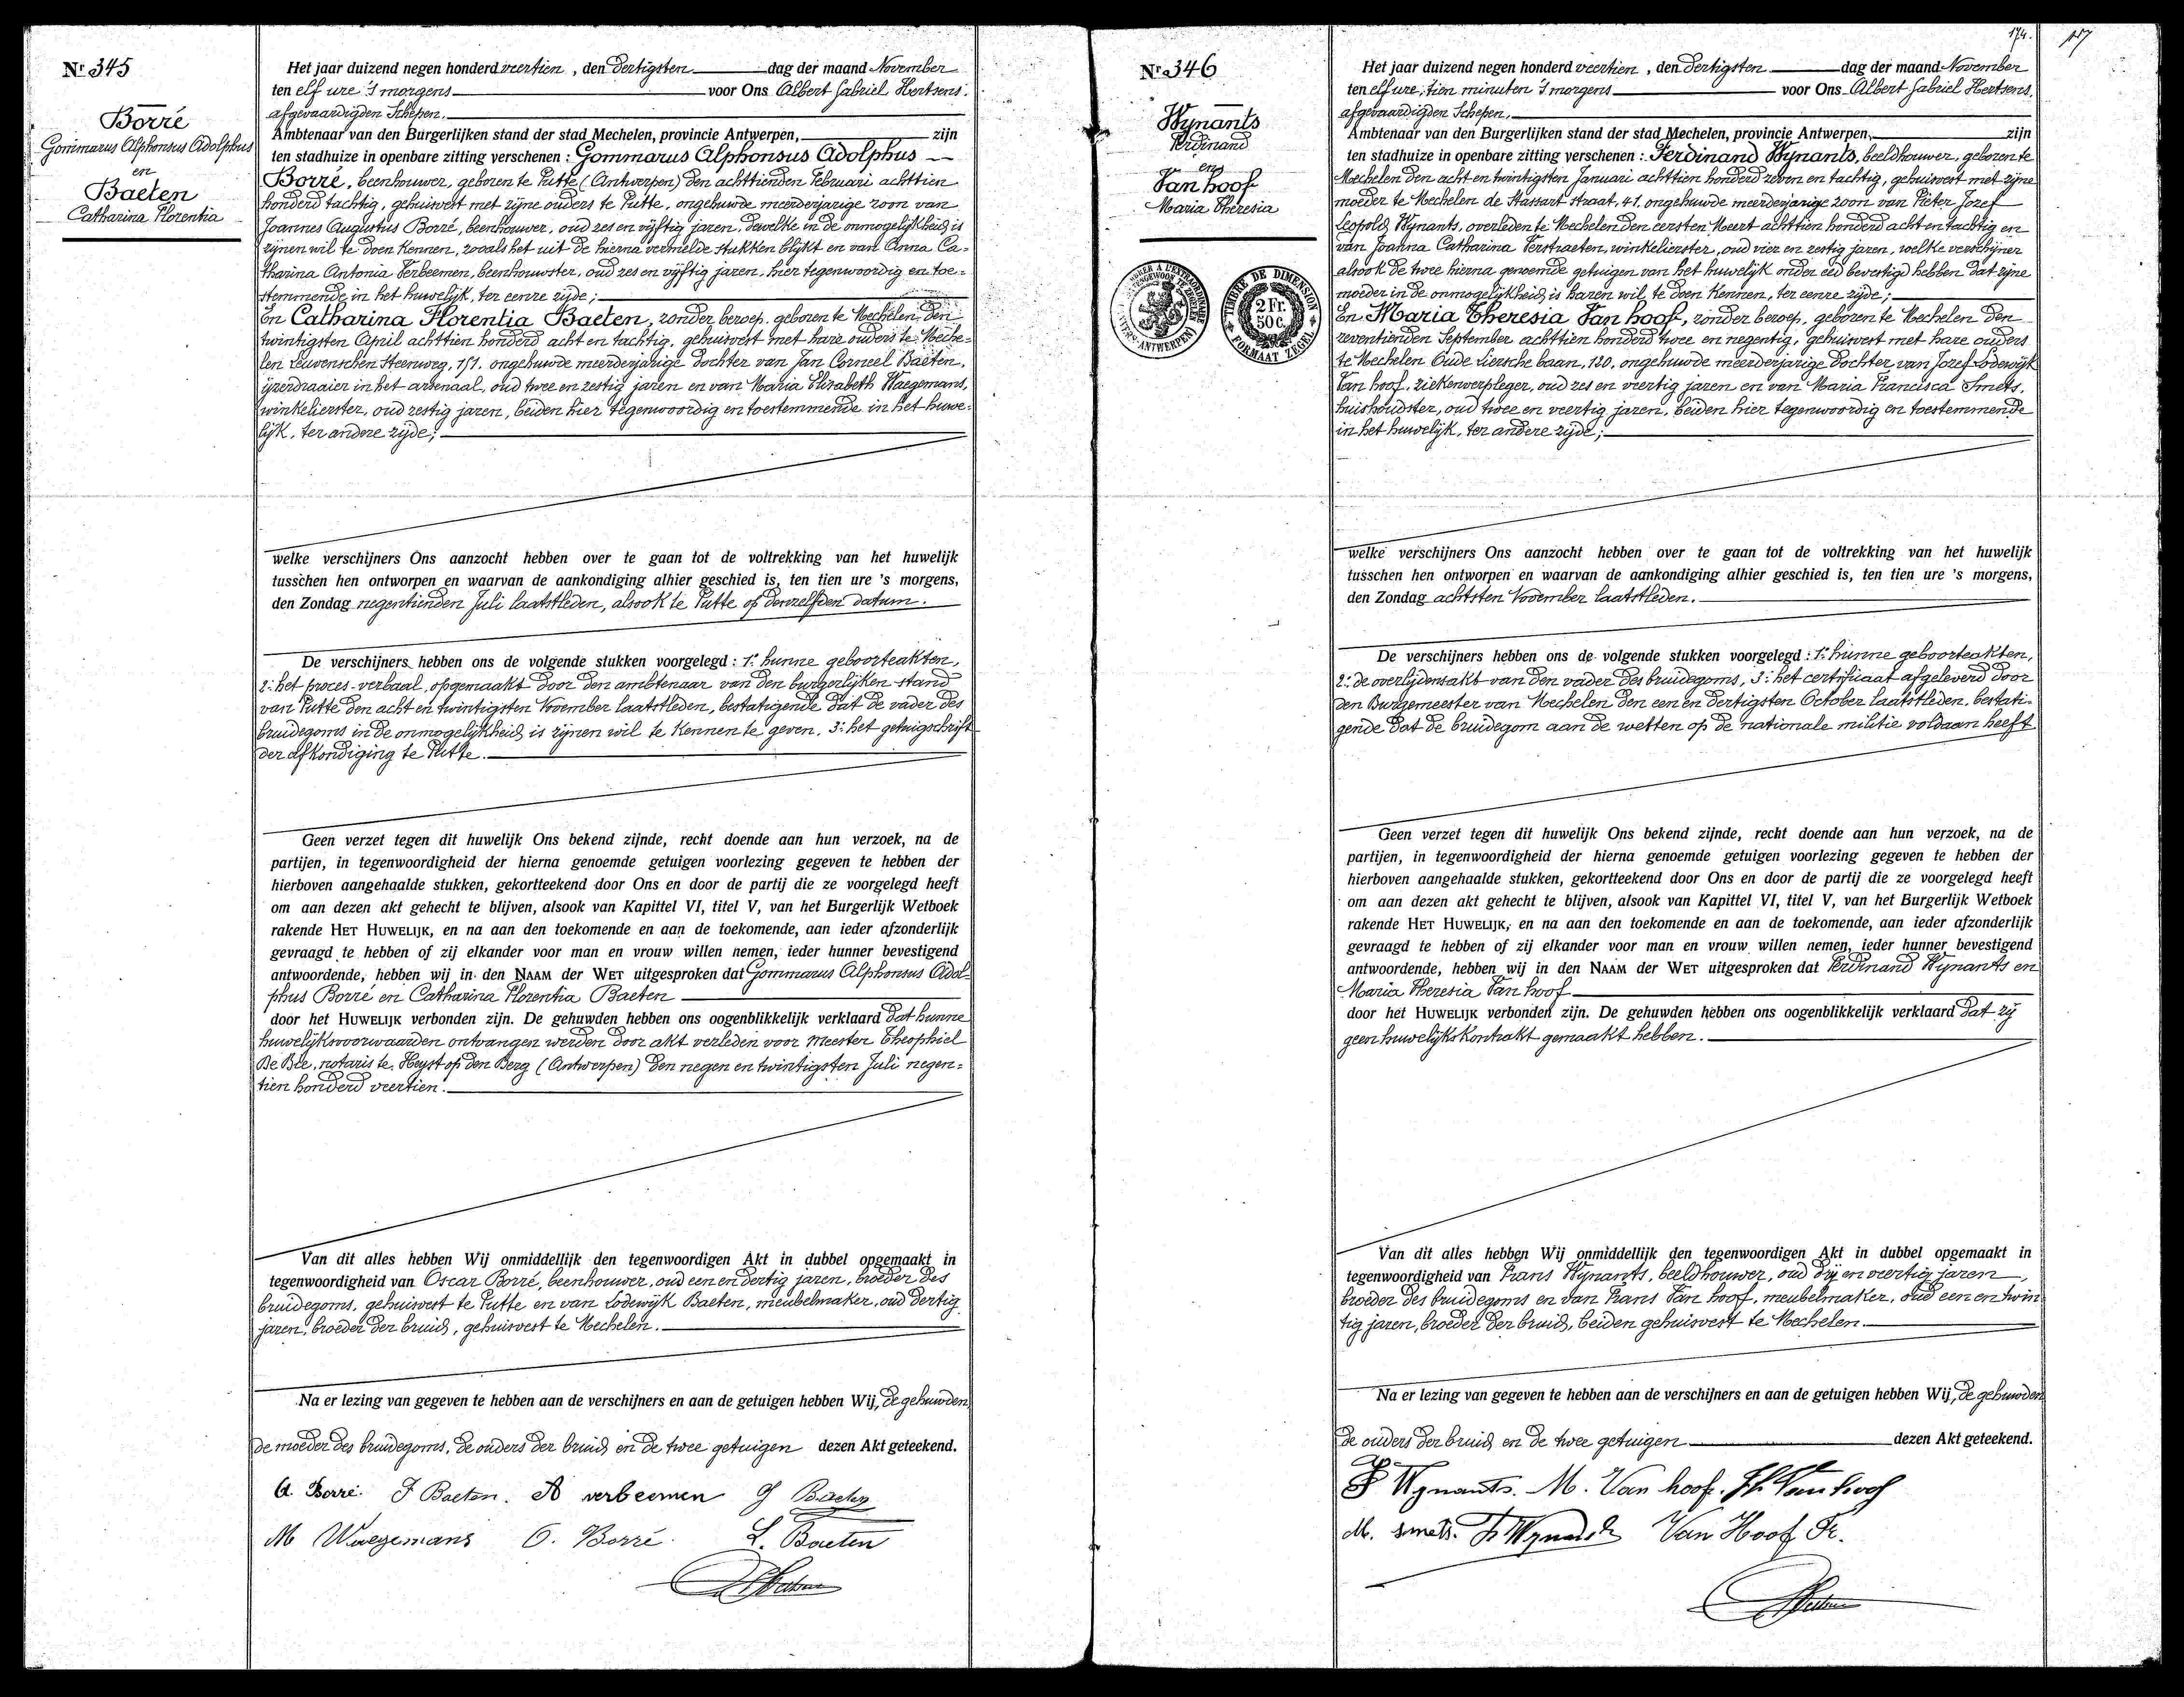 Nr 345
Borré
Gommarus Alphonsus Adolphus
en
Baeten
Catharina Florentia
Het jaar duizend negen honderd veertien, den dertigsten dag der maand November
ten elf ure 's morgens voor Ons Albert Gabriel Hertsens,
afgevaardigden Schepen,
Ambtenaar van den Burgerlijken stand der stad Mechelen, provincie Antwerpen, zijn
ten stadhuize in openbare zitting verschenen : Gommarus Alphonsus Adolphus
Borré, beenhouwer, geboren te Putte (Antwerpen) den achttienden Februari achttien
honderd tachtig, gehuisvest met zijne ouders te Putte, ongehuwde meerderjarige zoon van
Joannes Augustus Borré, beenhouwer, oud zes en vijftig jaren, dewelke in de onmogelijkheid is
zijnen wil te doen kennen, zooals het uit de hierna vermelde stukken blijkt en van Anna Ca=
tharina Antonia Verbeemen, beenhouwster, oud zes en vijftig jaren, hier tegenwoordig en toe=
stemmende in het huwelijk, ter eenre zijde;
En Catharina Florentia Baeten, zonder beroep, geboren te Mechelen, den
twintigsten April achttien honderd acht en tachtig, gehuisvest met hare ouders te Meche=
len Leuvenschen Steenweg, 151, ongehuwde meerderjarige dochter van Jan Corneel Baeten,
ijzerdraaier in het arsenaal, oud twee en zestig jaren en van Maria Elisabeth Waegemans,
winkelierster, oud zestig jaren, beiden hier tegenwoordig en toestemmende in het huwe=
lijk, ter andere zijde;
welke verschijners Ons aanzocht hebben over te gaan tot de voltrekking van het huwelijk
tusschen hen ontworpen en waarvan de aankondiging alhier geschied is, ten tien ure 's morgens,
den Zondag negentienden Juli laatstleden, alsook te Putte op denzelfden datum.
De verschijners hebben ons de volgende stukken voorgelegd : 1° hunne geboorteakten,
2° het proces-verbaal, opgemaakt door den ambtenaar van den burgerlijken stand
van Putte den acht en twintigsten November laatstleden, bestatigende dat de vader des
bruidegoms in de onmogelijkheid is zijnen wil te kennen te geven, 3° het getuigschrift
der afkondiging te Putte.
Geen verzet tegen dit huwelijk Ons bekend zijnde, recht doende aan hun verzoek, na de
partijen, in tegenwoordigheid der hierna genoemde getuigen voorlezing gegeven te hebben der
hierboven aangehaalde stukken, gekortteekend door Ons en door de partij die ze voorgelegd heeft
om aan dezen akt gehecht te blijven, alsook van Kapittel VI, titel V, van het Burgerlijk Wetboek
rakende HET HUWELIJK, en na aan den toekomende en aan de toekomende, aan ieder afzonderlijk
gevraagd te hebben of zij elkander voor man en vrouw willen nemen, ieder hunner bevestigend
antwoordende, hebben wij in den NAAM der WET uitgesproken dat Gommarus Alphonsus Adol=
phus Borré en Catharina Florentia Baeten
door het HUWELIJK verbonden zijn. De gehuwden hebben ons oogenblikkelijk verklaard dat hunne
huwelijksvoorwaarden ontvangen werden door akt verleden voor Meester Theophiel
De Bie, notaris te Heyst op den Berg (Antwerpen) den negen en twintigsten Juli negen=
tien honderd veertien.
Van dit alles hebben Wij onmiddellijk den tegenwoordigen Akt in dubbel opgemaakt in
tegenwoordigheid van Oscar Borré, beenhouwer, oud een en dertig jaren, broeder des
bruidegoms, gehuisvest te Putte en van Lodewijk Baeten, meubelmaker, oud dertig
jaren, broeder der bruid, gehuisvest te Mechelen.
Na er lezing van gegeven te hebben aan de verschijners en aan de getuigen hebben Wij, de gehuwden,
de moeder des bruidegoms, de ouders der bruid en de twee getuigen dezen Akt geteekend.
A. Borré. F Baeten. A verbeemen J Baeten
M Waegemans O. Borré. L. Baeten
174.
Nr 346
Wynants
Ferdinand
en
Van hoof
Maria Theresia
ANTWERPEN
TIMBRE DE DIMENSION
2 Fr.
50 c.
FORMAAT ZEGEL
Het jaar duizend negen honderd veertien, den dertigsten dag der maand November
ten elf ure, tien minuten 's morgens voor Ons Albert Gabriel Hertsens,
afgevaardigden Schepen,
Ambtenaar van den Burgerlijken stand der stad Mechelen, provincie Antwerpen, zijn
ten stadhuize in openbare zitting verschenen : Ferdinand Wynants, beeldhouwer, geboren te
Mechelen den acht en twintigsten Januari achttien honderd zeven en tachtig, gehuisvest met zijne
moeder te Mechelen de Stassart straat, 41, ongehuwde meerderjarige zoon van Pieter Jozef
Leopold Wynants, overleden te Mechelen den eersten Meert achttien honderd acht en tachtig en
van Joanna Catharina Verstraeten, winkelierster, oud vier en zestig jaren, welke verschijner
alsook de twee hierna genoemde getuigen van het huwelijk onder eed bevestigd hebben dat zijne
moeder in de onmogelijkheid is haren wil te doen kennen, ter eenre zijde;
En Maria Theresia Van hoof, zonder beroep, geboren te Mechelen den
zeventienden September achttien honderd twee en negentig, gehuisvest met hare ouders
te Mechelen Oude Liersche baan, 120, ongehuwde meerderjarige dochter van Jozef Lodewijk
Van hoof, ziekenverpleger, oud zes en veertig jaren en van Maria Francisca Smets,
huishoudster, oud twee en veertig jaren, beiden hier tegenwoordig en toestemmende
in het huwelijk, ter andere zijde;
welke verschijners Ons aanzocht hebben over te gaan tot de voltrekking van het huwelijk
tusschen hen ontworpen en waarvan de aankondiging alhier geschied is, ten tien ure 's morgens,
den Zondag achtsten November laatstleden.
De verschijners hebben ons de volgende stukken voorgelegd : 1° hunne geboorteakten,
2° de overlijdensakt van den vader des bruidegoms, 3° het certificaat afgeleverd door
den Burgemeester van Mechelen den een en dertigsten October laatstleden, bestati=
gende dat de bruidegom aan de wetten op de nationale militie voldaan heeft
Geen verzet tegen dit huwelijk Ons bekend zijnde, recht doende aan hun verzoek, na de
partijen, in tegenwoordigheid der hierna genoemde getuigen voorlezing gegeven te hebben der
hierboven aangehaalde stukken, gekortteekend door Ons en door de partij die ze voorgelegd heeft
om aan dezen akt gehecht te blijven, alsook van Kapittel VI, titel V, van het Burgerlijk Wetboek
rakende HET HUWELIJK, en na aan den toekomende en aan de toekomende, aan ieder afzonderlijk
gevraagd te hebben of zij elkander voor man en vrouw willen nemen, ieder hunner bevestigend
antwoordende, hebben wij in den NAAM der WET uitgesproken dat Ferdinand Wynants en
Maria Theresia Van hoof
door het HUWELIJK verbonden zijn. De gehuwden hebben ons oogenblikkelijk verklaard dat zij
geen huwelijkskontrakt gemaakt hebben.
Van dit alles hebben Wij onmiddellijk den tegenwoordigen Akt in dubbel opgemaakt in
tegenwoordigheid van Frans Wynants, beeldhouwer, oud drij en veertig jaren,
broeder des bruidegoms en van Frans Van hoof, meubelmaker, oud een en twin
tig jaren, broeder der bruid, beiden gehuisvest te Mechelen.
Na er lezing van gegeven te hebben aan de verschijners en aan de getuigen hebben Wij, de gehuwden
de ouders der bruid en de twee getuigen dezen Akt geteekend.
F Wynants. M. Van hoof. Van hoof
M. smets. Fr Wynants Van Hoof Fr.